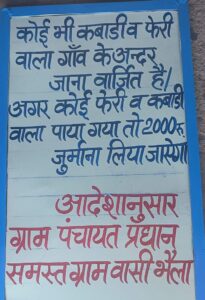 कोई भी कबाडी व फेरी
वाला गाँव के अन्दर
जाना वार्जित है।
अगर कोई फेरी व कबाडी
वाला पाया गया तो 2000रू.
जुर्माना लिया जाऐगा
आदेशानुसार
ग्राम पंचायत प्रधान
समस्त ग्राम वासी भैला